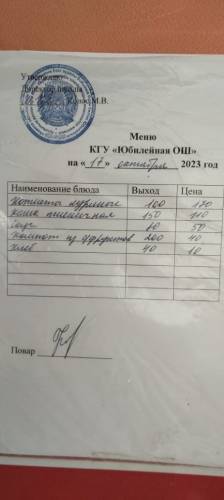 Утверждаю
Директор школы
М.В.
Меню
КГУ «Юбилейная ОШ»
на « 17 » октября 2023 год
Наименование блюда Выход Цена
Котлеты куриные 100 170
каша пшеничная 150 110
Соус 50
компот из сухофруктов 200 40
хлеб 40 10
Повар